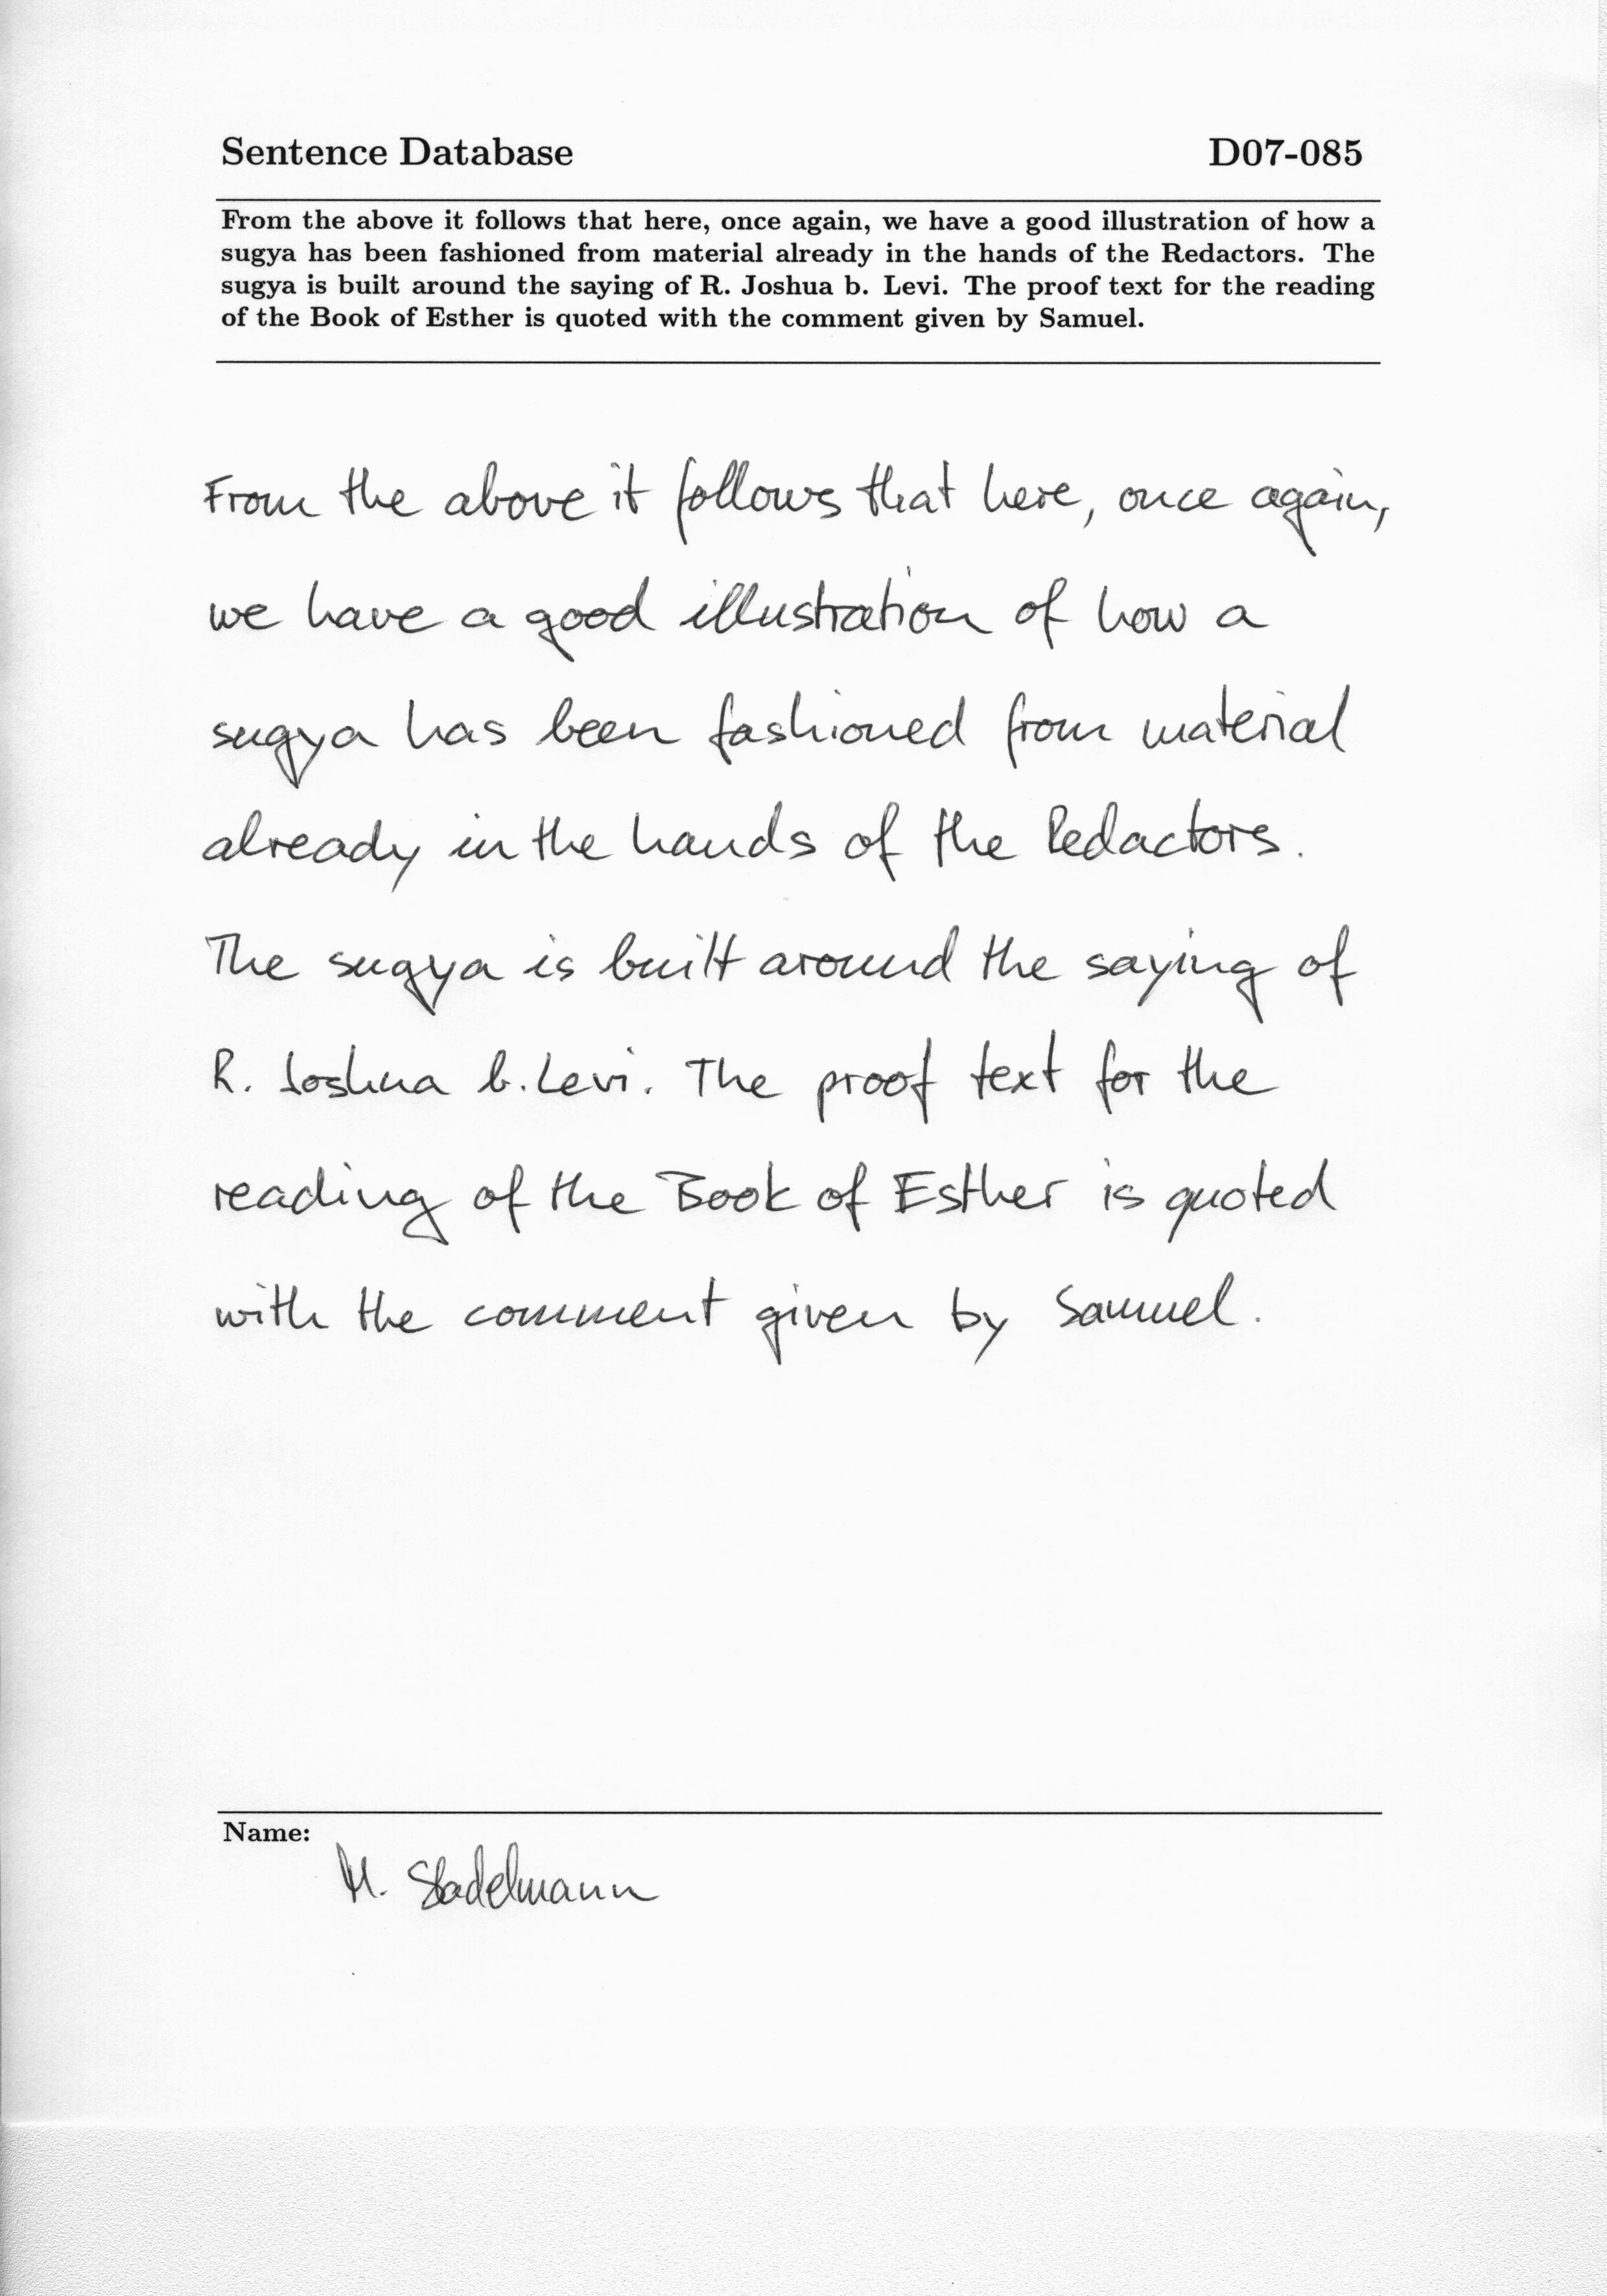 Sentence Database D07-085
From the above it follows that here, once again, we have a good illustration of how a
sugya has been fashioned from material already in the hands of the Redactors. The
sugya is built around the saying of R. Joshua b. Levi. The proof text for the reading
of the Book of Esther is quoted with the comment given by Samuel.
From the above it follows that here, once again,
we have a good illustration of how a
sugya has been fashioned from material
already in the hands of the Redactors.
The sugya is built around the saying of
R. Joshua b. Levi. The proof text for the
reading of the Book of Esther is quoted
with the comment given by Samuel.
Name:
M. Stadelmann